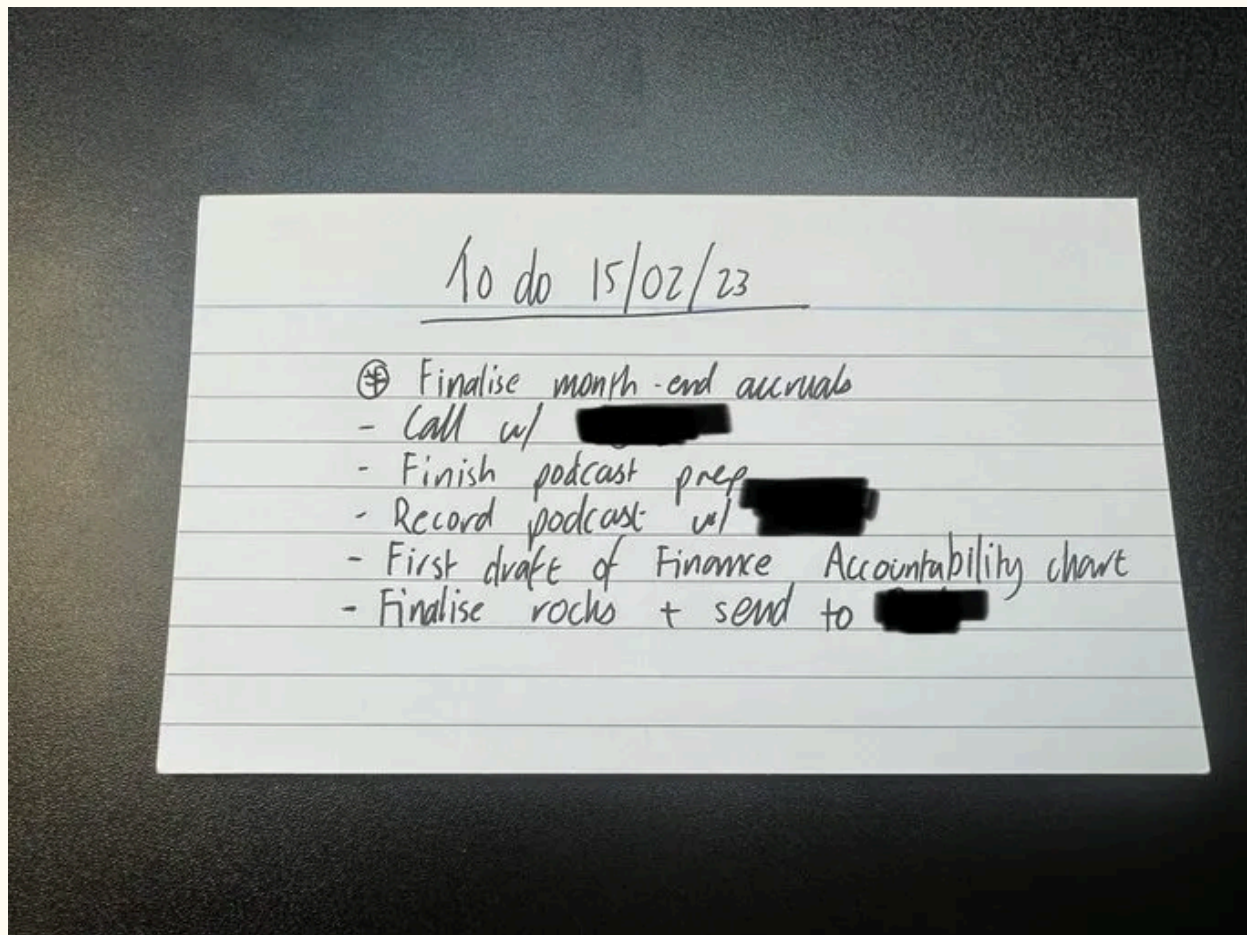 To do 15/02/23
Finalise month-end accruals
- Call w/
- Finish podcast prep
- Record podcast w/
- First draft of Finance Accountability chart
- Finalise rocks + send to